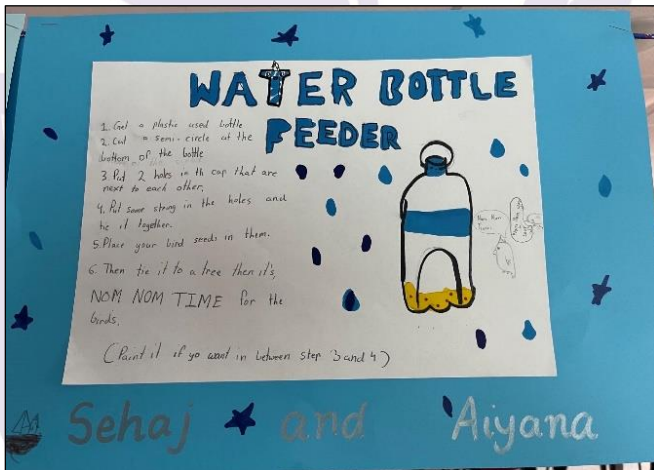 WATER BOTTLE
FEEDER
1. Get a plastic used bottle
2. Cut a semi-circle at the
bottom of the bottle
3. Put 2 holes in th cap that are
next to each other.
4. Put some string in the holes and
tie it together.
5. Place your bird seeds in them.
6. Then tie it to a tree then it's,
NOM NOM TIME for the
birds.
(Paint it if yo want in between step 3 and 4)
Nom Nom
Sehaj and Aiyana